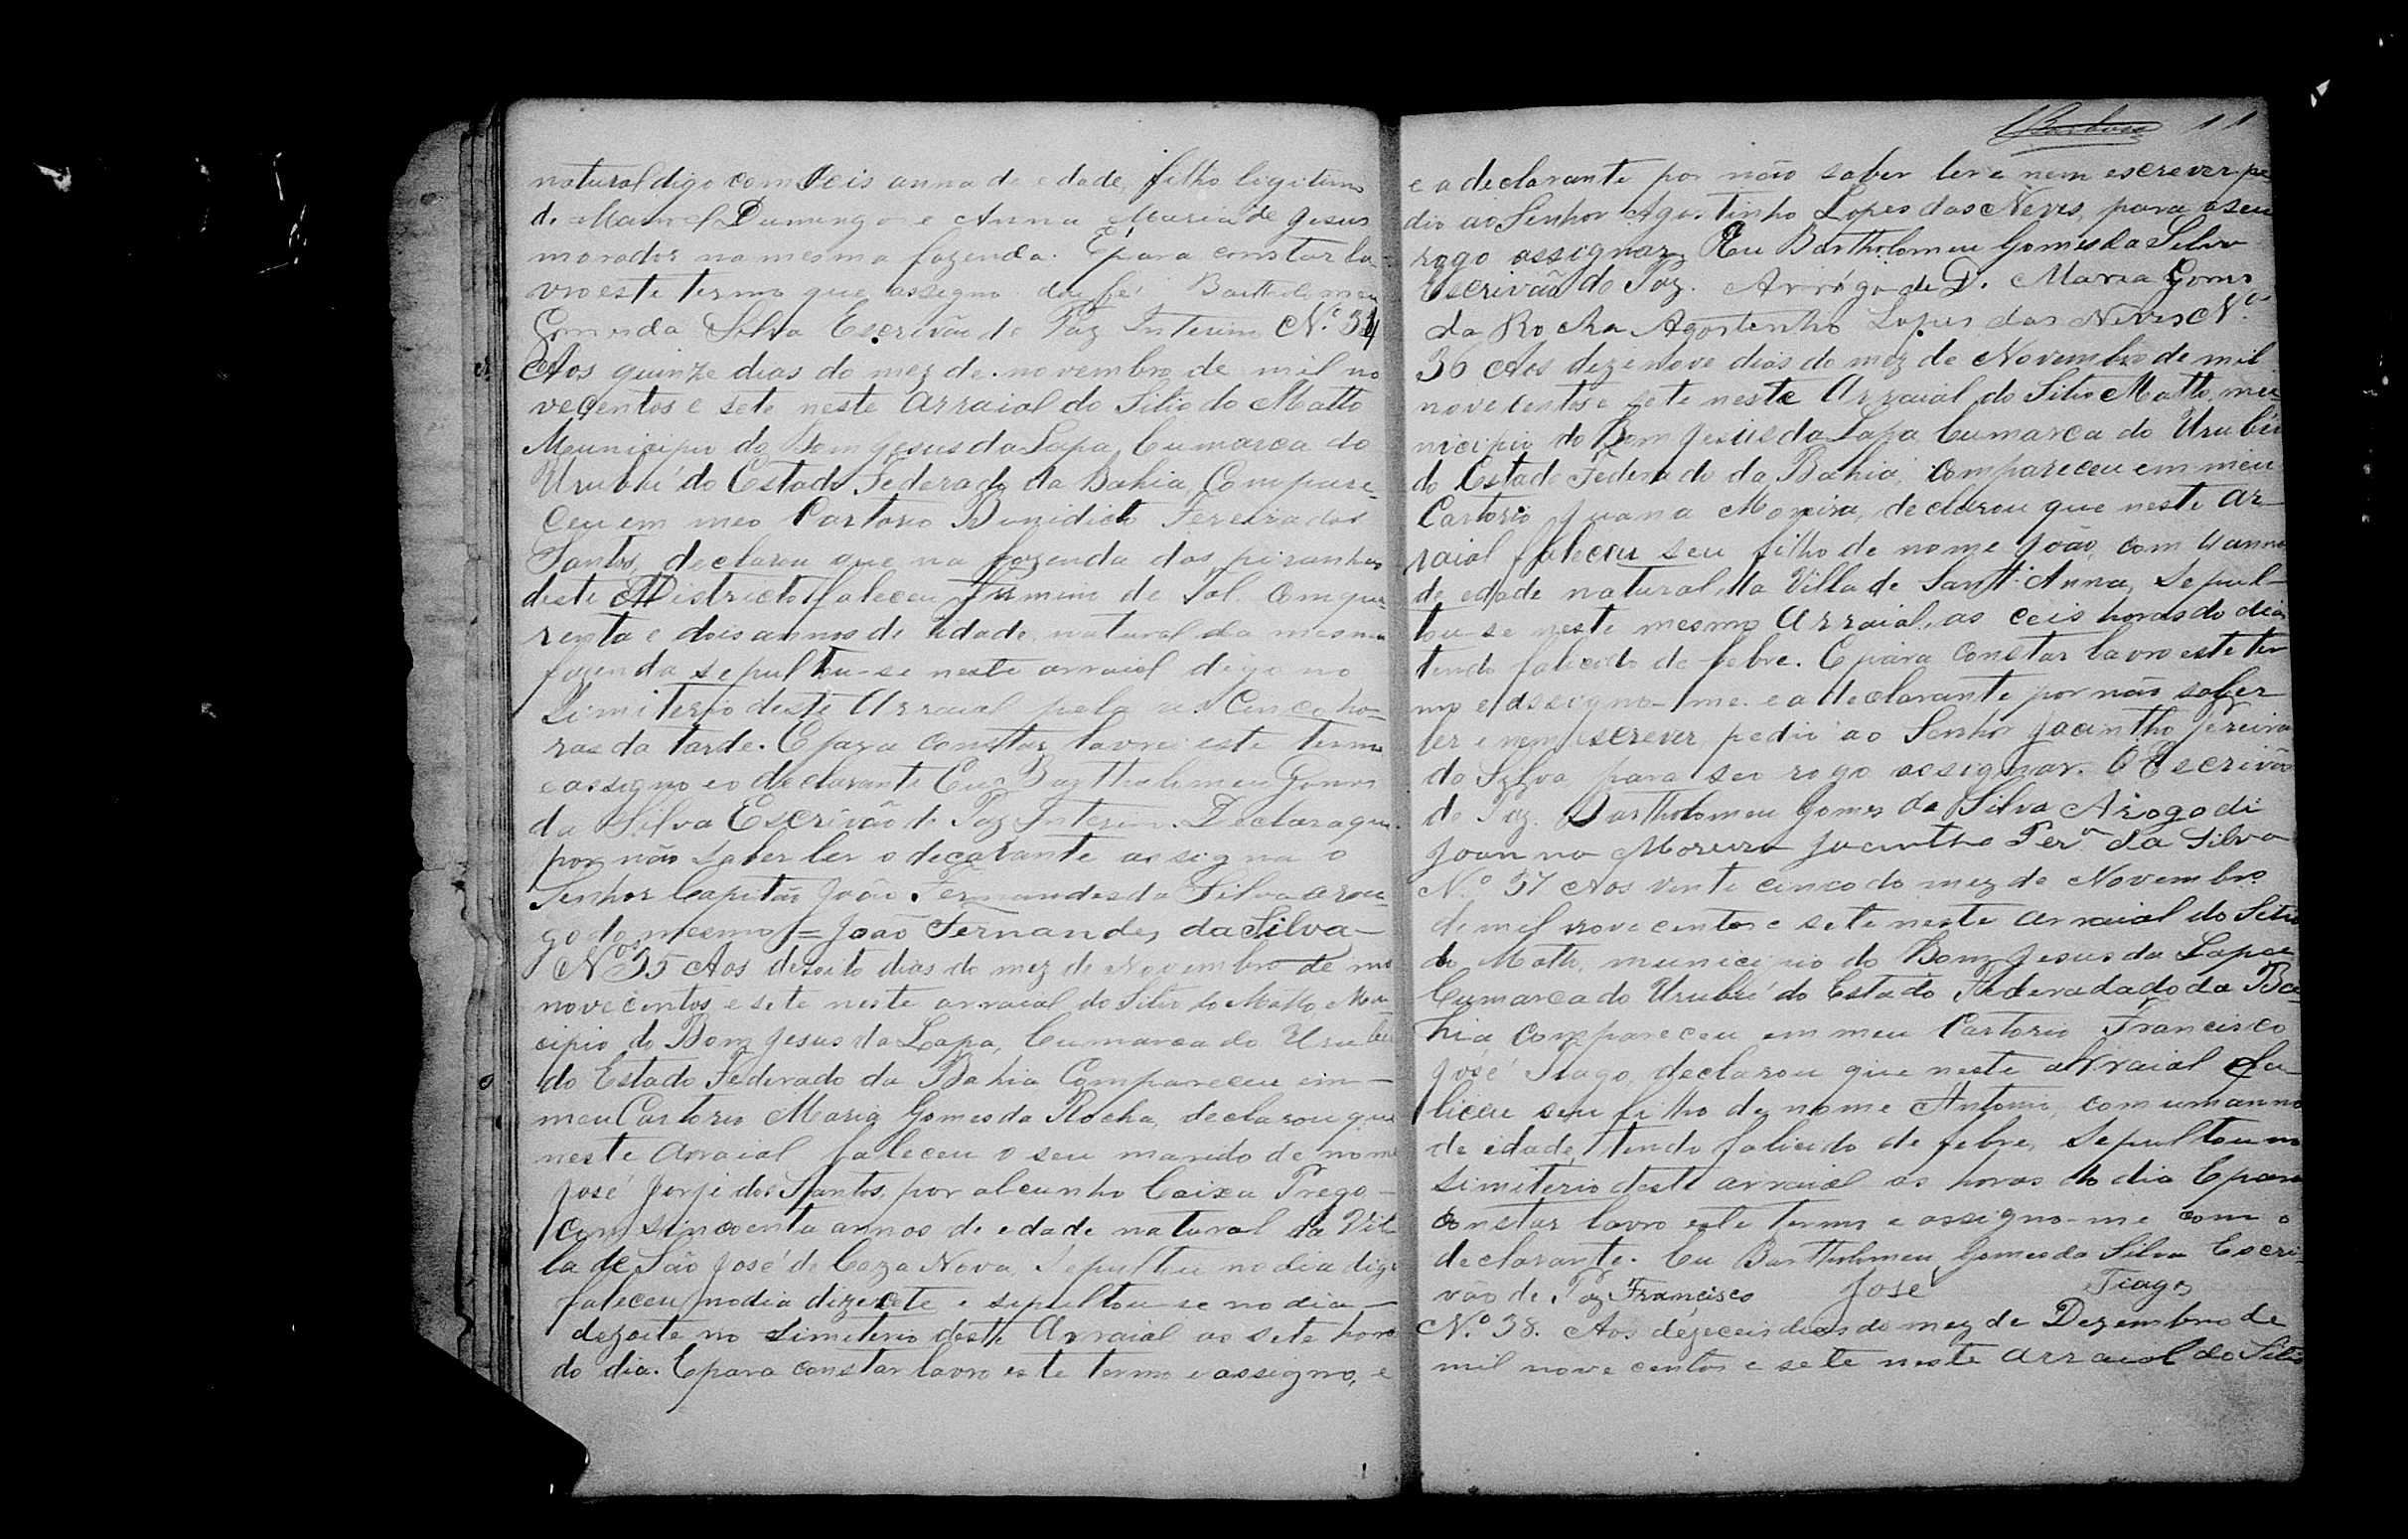 natural digo com seis anna de edade, filho ligitimo
de Manoel Dumingo e Anna Maria de Jesus
morador na mesma fazenda. E para constar la-
vro este termo que assigno dou fé Bartholomeu
Gomes da Silva Escrivão de Paz Interino N.º 34
Aos quinze dias do mez de novembro de mil no
vecentos e sete neste Arraial do Sitio do Matto
Municipio do Bom Jesus da Lapa, Cumarca do
Urubú do Estado Federado da Bahia, Compare-
ceu em meo Cartorio Binidicto Fereira dos
Santos, declarou que na fazenda das piranhas
deste Districto faleceu Firmino de Tal com qua-
renta e dois annos de edade natural da mesma
fazenda sepultou-se neste arraial digo no
Simiterio deste Arraial pela as Cinco ho-
ras da tarde. E para constar lavrei este termo
e assigno e o declarante Eu Bartholomeu Gomes
da Silva Escrivão de Paz Interino. Declara que
por não saber ler o deçarante assigna o
Senhor Capitão João Fernandes da Silva arou-
go do mesmo = João Fernandes da Silva —
Nº 35 Aos dezoito dias do mez de Novembro de mil
novecentos e sete neste arraial do Sitio do Matto, Mu-
cipio do Bom Jesus da Lapa, Cumarca do Urubú
do Estado Federado da Bahia Compareceu em —
meu Cartorio Maria Gomes da Rocha, declarou que
neste Arraial faleceu o seu marido de nome
José Jorje dos Santos, por alcunho Caixa Prego —
com sincoenta annos de edade natural da Vil-
la de São José de Caza Nova, Sepultou no dia digo
faleceu no dia dizecete e sepultou-se no dia —
dezoito no simiterio deste Arraial as sete horas
do dia. E para constar lavro este termo e assigno, e
11
e a declarante por não saber ler e nem escrever pe
dio ao Senhor Agostinho Lopes das Neves, para a seu
rogo assignar Eu Bartholomeu Gomes da Silva
Escrivão de Paz. Arrógo de D. Maria Gomes
da Rocha Agostinho Lopes das Neves N.º
36 Aos dezenove dias do mez de Novembro de mil
novecentos e sete neste Arraial do Sitio Matto, mu-
nicipio do Bom Jesus da Lapa Cumarca do Urubú
do Estado Federado da Bahia, Compareceu em meu
Cartorio Juana Moreira, declarou que neste Ar-
raial faleceu seu filho de nome João, com 4 annos
de edade natural da Villa de Sant'Anna, Sepul-
tou-se neste mesmo Arraial, as ceis horas do dia
tendo falicido de febre. E para Constar lavro este ter
mo e assigno-me. e a declarante por não saber
ler e nem escrever pedio ao Senhor Jacintho Pereira
da Silva para seu rogo assignar. O Escrivão
de Paz. Bartholomeu Gomes da Silva Arogo di
Joanna Moreira Jacintho Per.ª da Silva
N.º 37 Aos vinte cinco do mez de Novembro
de mil nove centos e sete neste arraial do Sitio
do Matto, municipio do Bom Jesus da Lapa
Cumarca do Urubú do Estado Federadado da Ba-
hia compareceu em meu Cartorio Francisco
José Tiago, declarou que neste arraial fa-
liceu seu filho de nome Antonio, com um anno
de edade, tendo falicido de febre, Sepultou no
simiterio deste arraial as horas do dia E para
constar lavro este termo e assigno-me com o
declarante. Eu Bartholomeu Gomes da Silva Escri-
vão de Paz Francisco José Tiago
N.º 38. Aos dezeceis dias do mez de Dezembro de
mil nove centos e sete neste arraial do Sitio